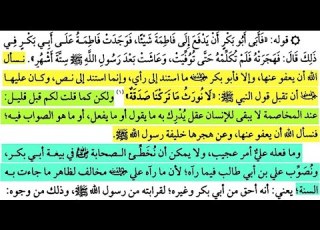 قوله: «فأبى أبو بكر أن يدفع إلى فاطمة شيئًا، فوجدت فاطمة على أبي بكر في
ذلك قال: فهجرته فلم تكلمه حتى توفيت، وعاشت بعد رسول الله ﷺ ستة أشهر». نسأل
الله أن يعفو عنها، وإلا فأبو بكر ما استند إلى رأي، وإنما استند إلى نص، وكان عليها
أن تقبل قول النبي ﷺ: «لا نورث ما تركنا صدقة»(١) ولكن كما قلت لكم قبل قليل:
عند المخاصمة لا يبقى للإنسان عقل يدرك به ما يقول أو ما يفعل، أو ما هو الصواب فيه؛
فنسأل الله أن يعفو عنها، وعن هجرها خليفة رسول الله ﷺ.
وما فعله علي أمر عجيب، ولا يمكن أن نخطئ الصحابة في بيعة أبي بكر،
ونصوب علي بن أبي طالب فيما رآه؛ لأن ما رآه علي مخالف لظاهر ما جاءت به
السنة؛ يعني: أنه أحق من أبي بكر وغيره؛ لقرابته من رسول الله ﷺ، وذلك من وجوه: